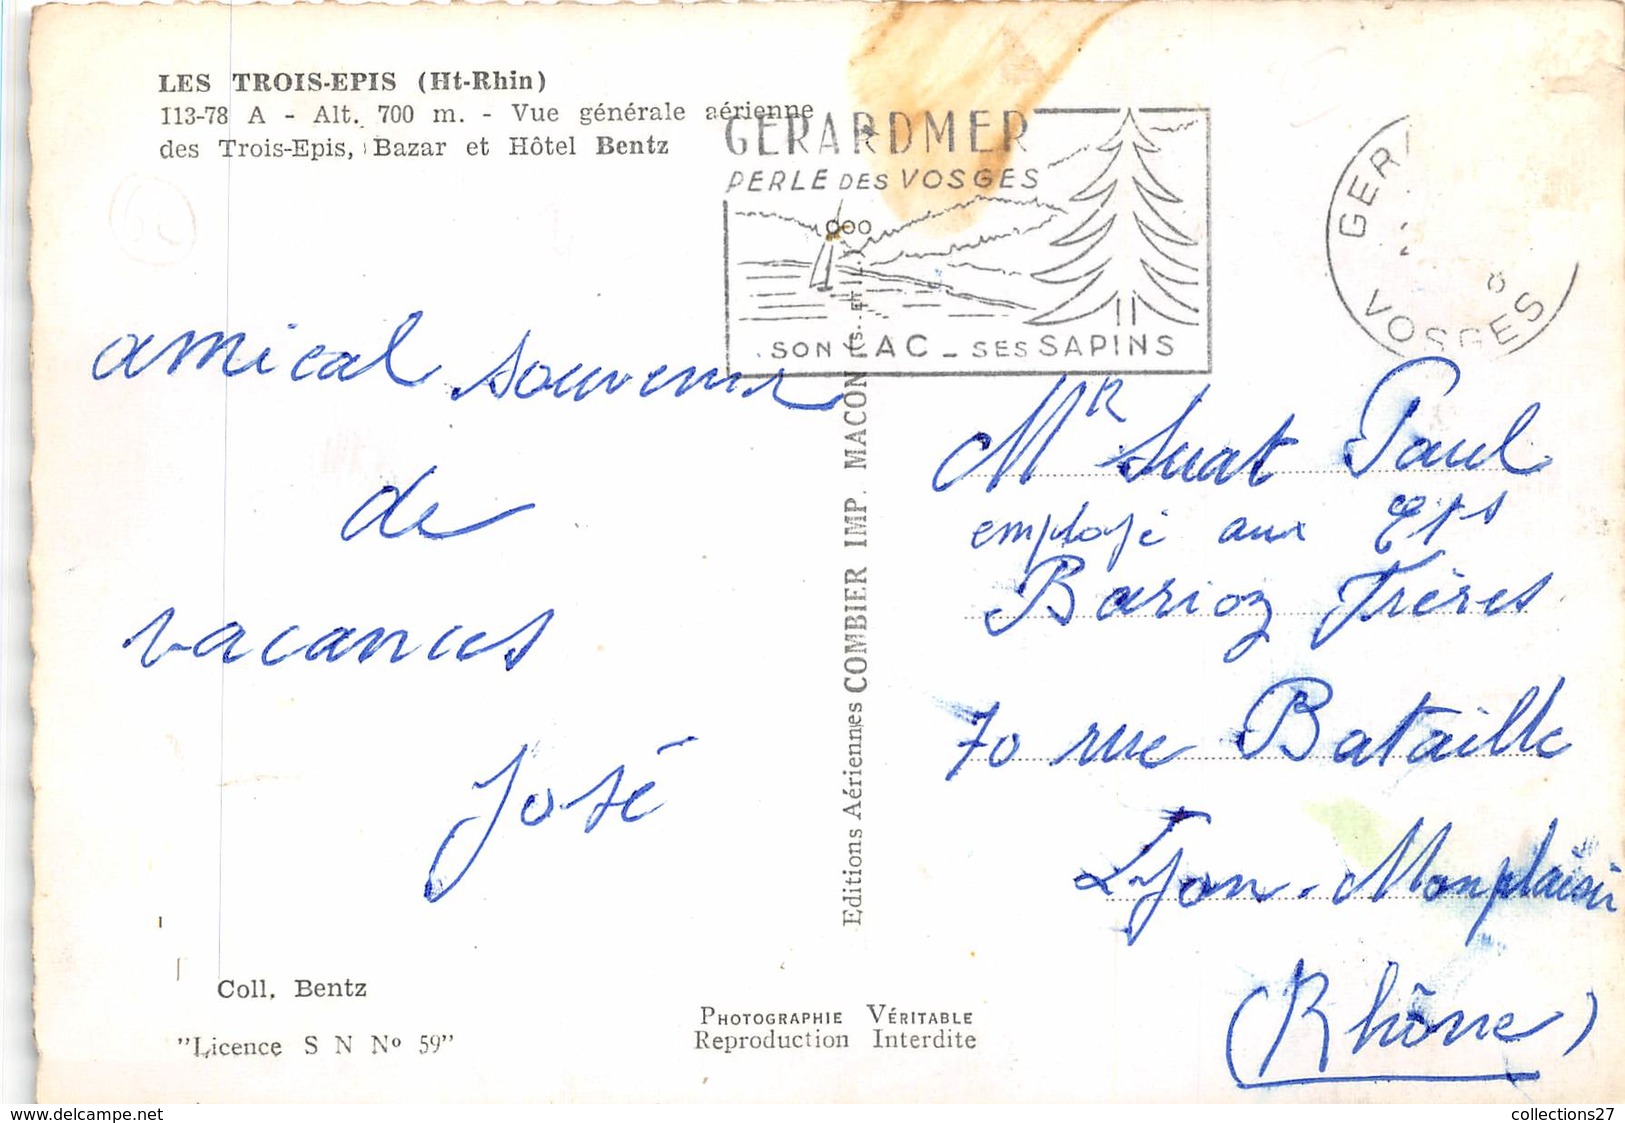 LES TROIS-EPIS (Ht-Rhin)
113-78 A - Alt. 700 m. - Vue générale aérienne
des Trois-Epis, Bazar et Hôtel Bentz
GERARDMER
PERLE DES VOSGES
SON LAC - SES SAPINS
GER
VOSGES
amical souvenir
de
vacances
José
Editions Aériennes COMBIER IMP. MACON
Mr Suat Paul
employé aux Ets
Barioz Frères
70 rue Bataille
Lyon. Monplaisir
(Rhône)
Coll. Bentz
"Licence S N Nº 59"
PHOTOGRAPHIE VÉRITABLE
Reproduction Interdite
delcampe.net
collections27